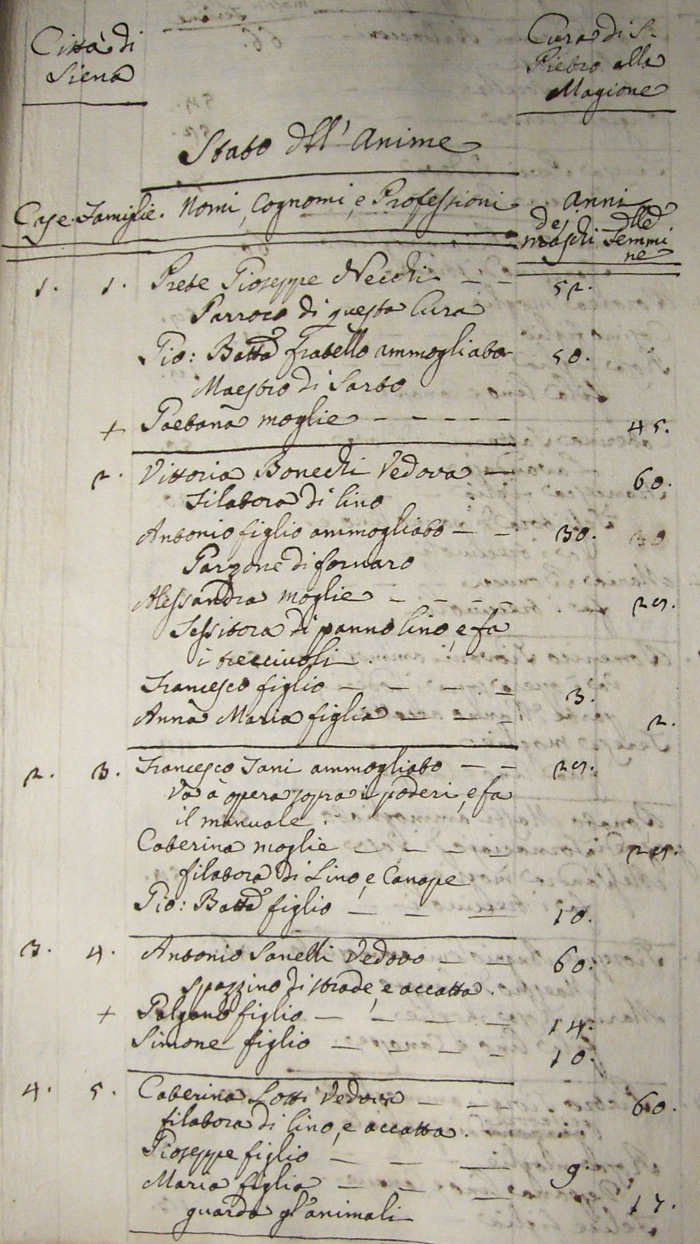 Città di
Siena
Cura di S.
Pietro alla
Magione
Stato dell' Anime
Case. Famiglie. Nomi, Cognomi, e Professioni
Anni
de' maschi
delle Femmine
1. 1. Prete Gioseppe Necchi — — 52.
Parroco di questa Cura
Gio: Batta fratello ammogliato 50.
Maestro di Sarto
+ Gaetana moglie — — — — — 45.
2. Vittoria Bonechi Vedova — 60.
Filatora di lino
Antonio figlio ammogliato — — 30.
Garzone di fornaro
Alessandra moglie — — — 29.
Tessitora di panno lino, e fa
i
Francesco figlio — — — — 3.
Anna Maria figlia — — — 2.
2. 3. Francesco Tani ammogliato — — 29.
Va a opera sopra i poderi, e fa
il manuale.
Caterina moglie — — — — 29.
filatora di Lino, e Canape
Gio: Batta figlio — — — — 10.
3. 4. Antonio Sanelli Vedovo — — 60.
Spazzino di strade, e accatta.
+ Galgano figlio — — — — — 14.
Simone figlio — — — — — 10.
4. 5. Caterina Lotti Vedova — — 60.
filatora di lino, e accatta.
Gioseppe figlio — — — — 9.
Maria figlia — — — — 17.
guarda gl'animali